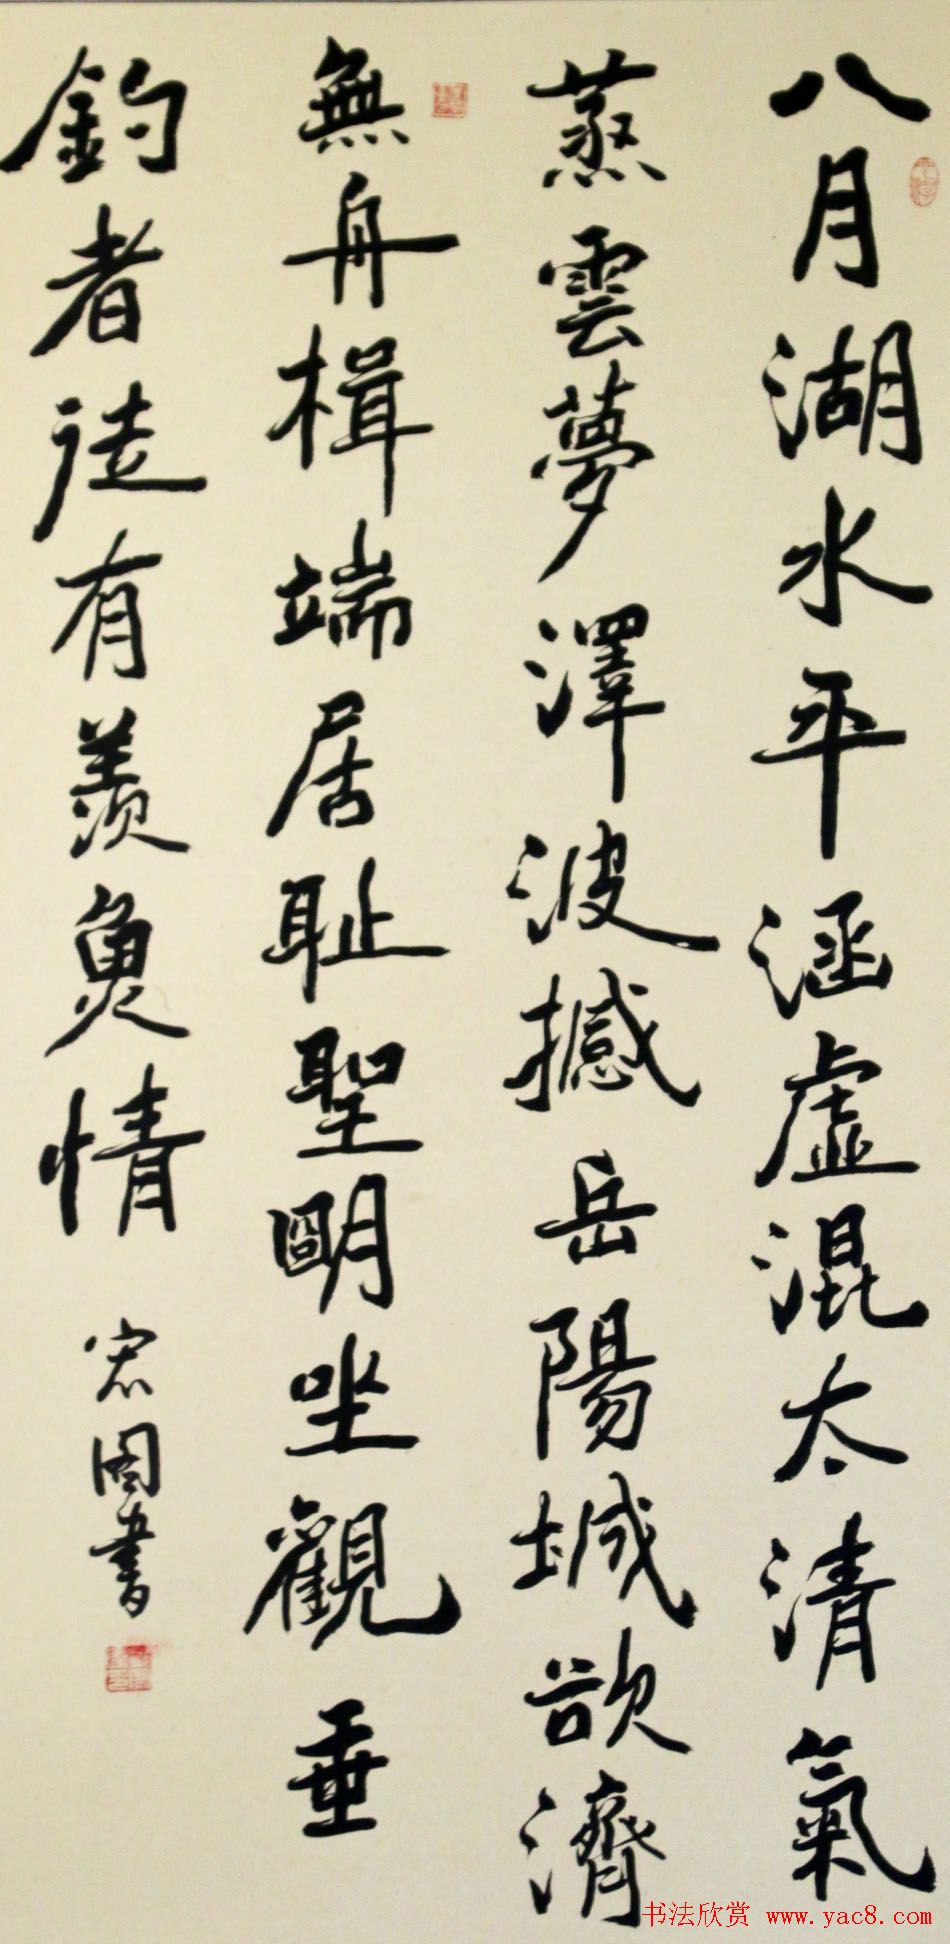 八月湖水平涵虛混太清氣
蒸雲夢澤波撼岳陽城欲濟
無舟楫端居耻聖明坐觀垂
釣者徒有羨魚情
宏圖書
书法欣赏 www.yac8.com